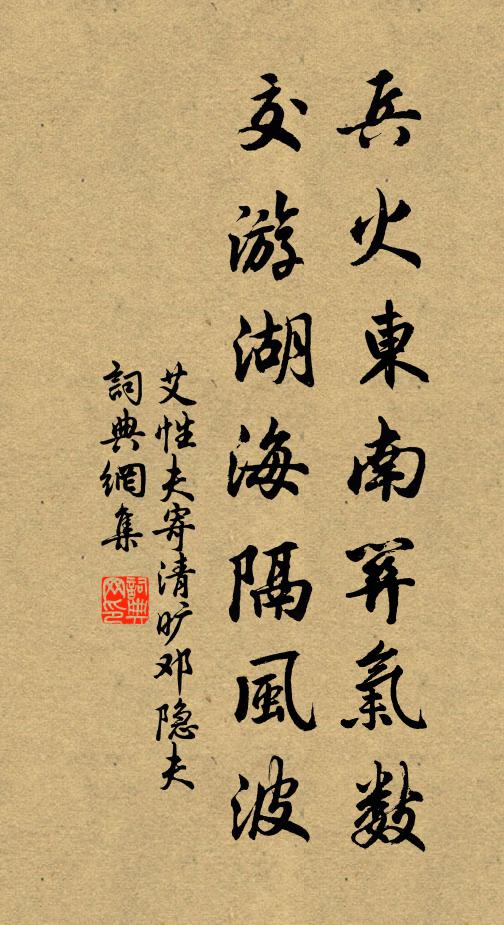 兵火東南關氣數
交游湖海隔風波
艾性夫寄清旷邓隐夫
詞典網集
詞典
网印